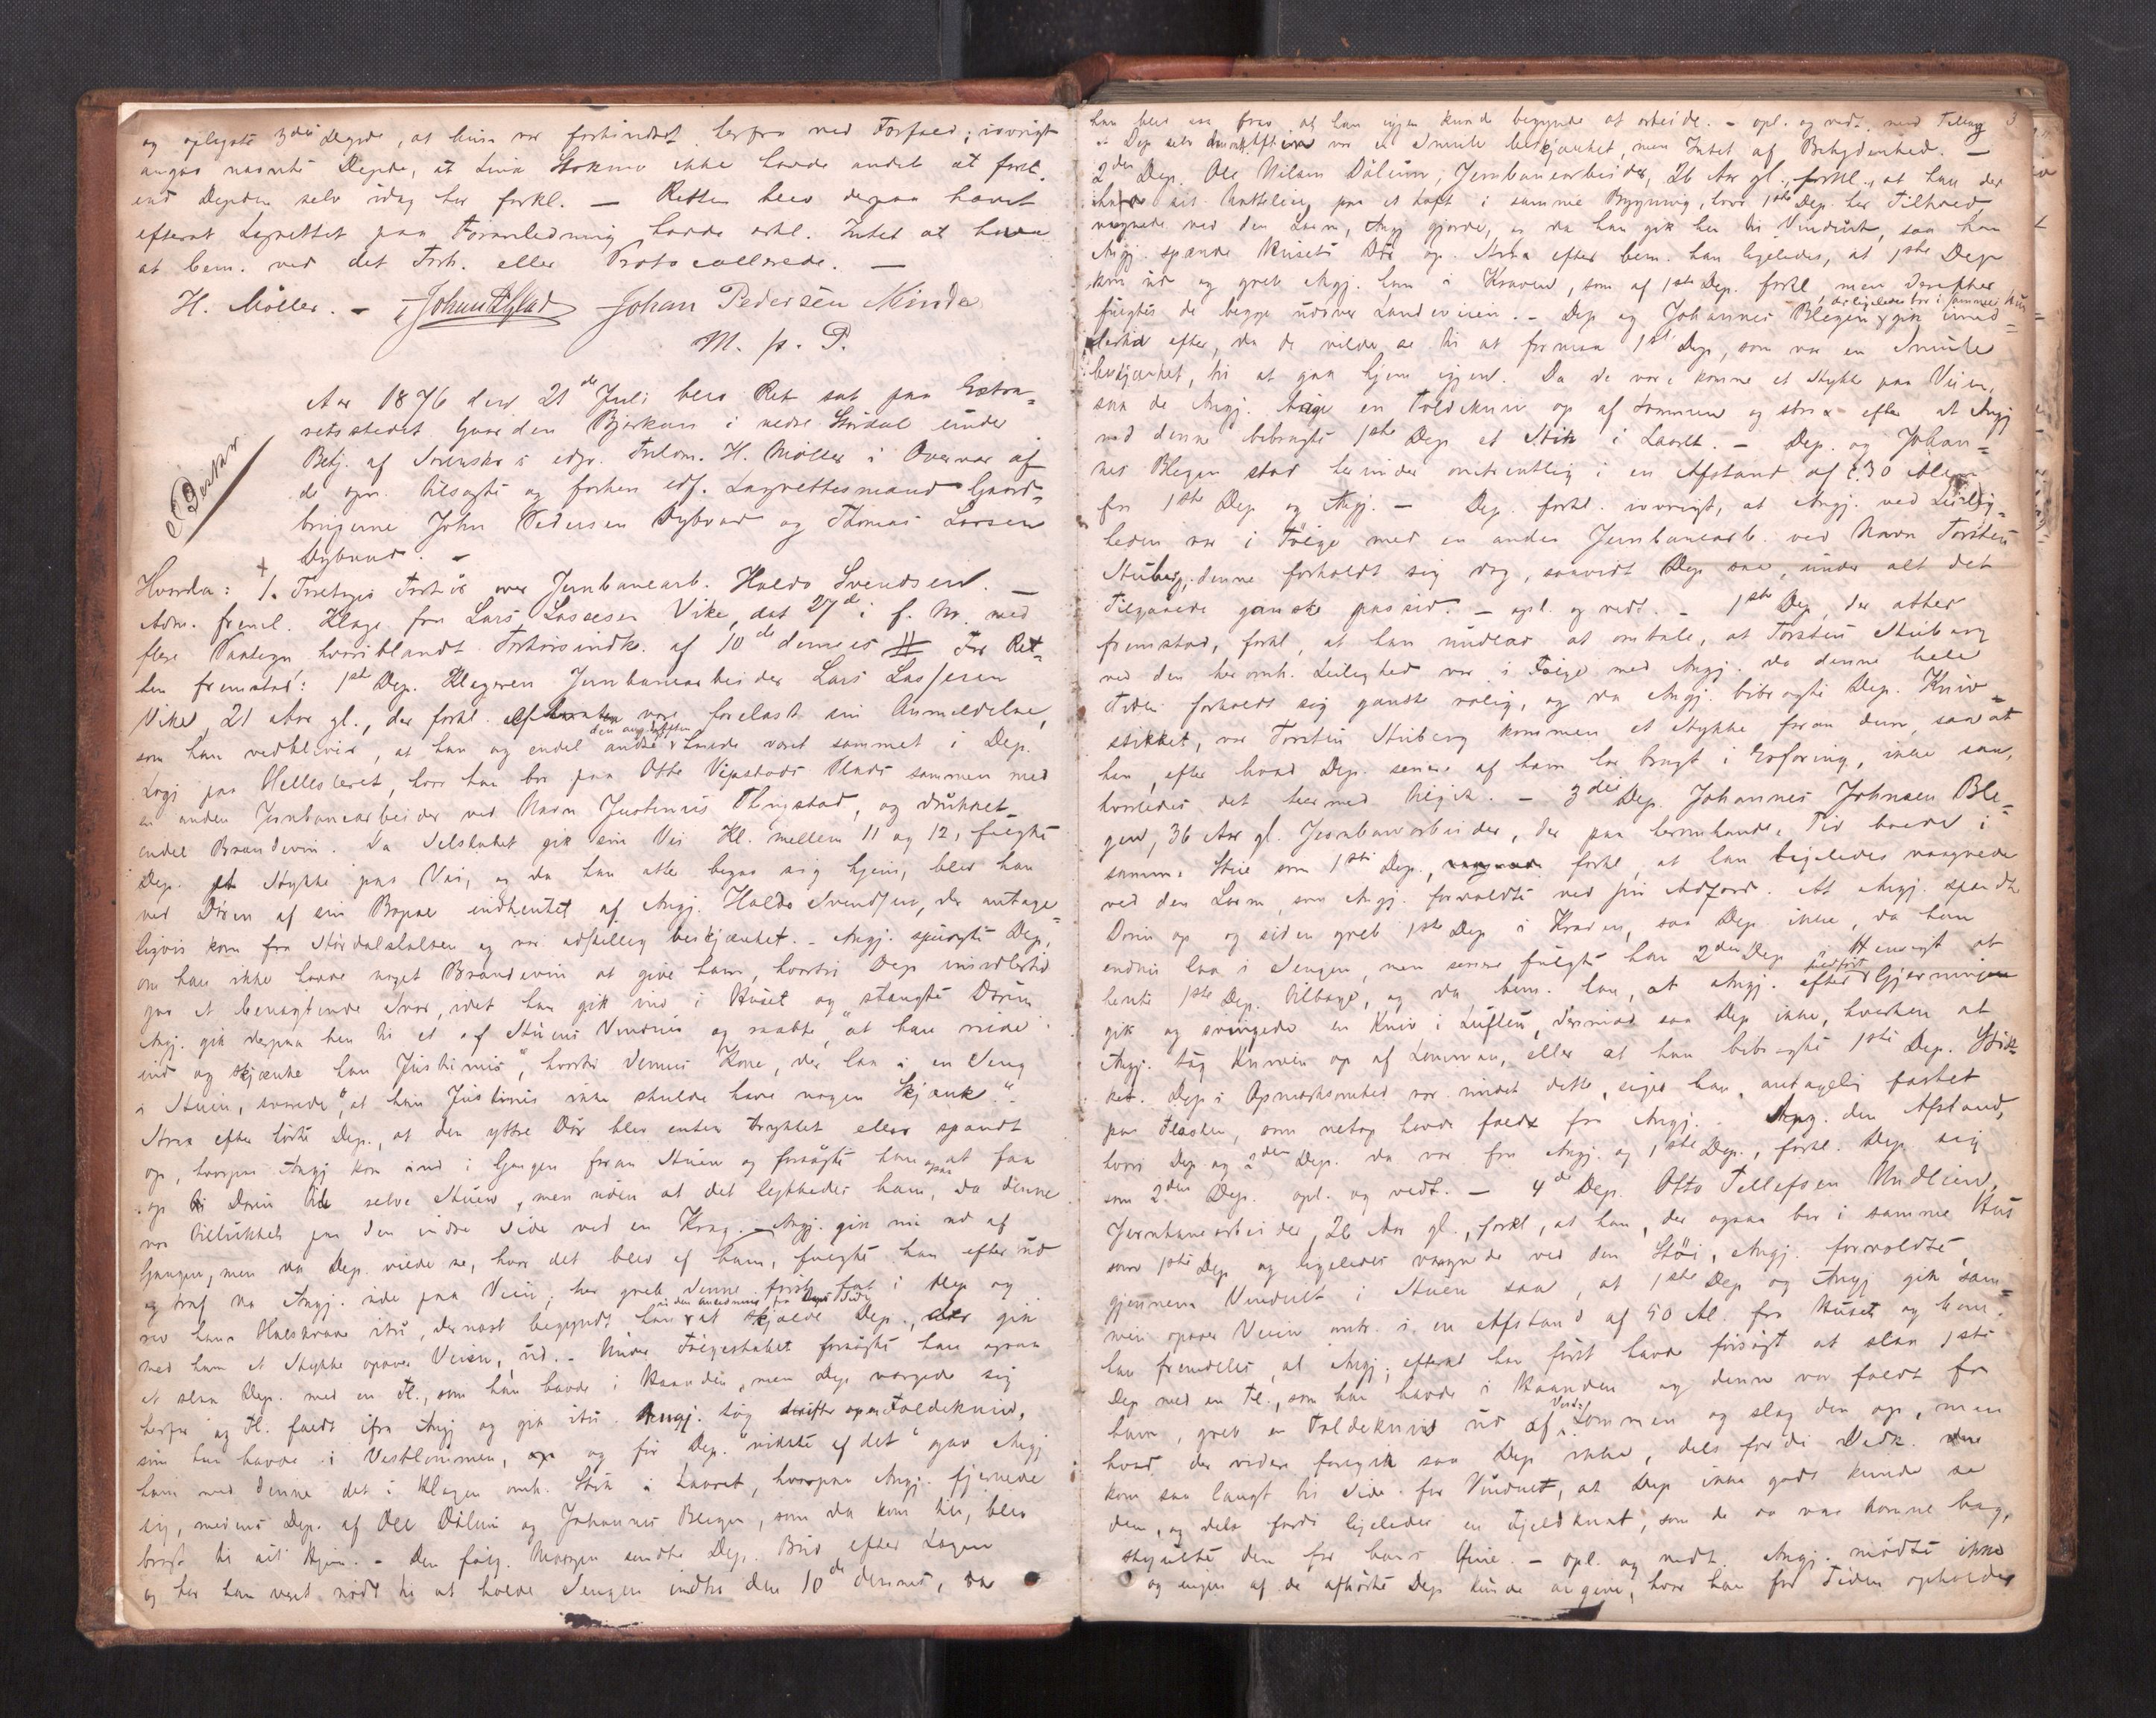 og oplyste 3die Depde, at hun var forhindret herfra ved Forfald; iøvrigt
angav nævnte Depde, at Lina Stokmo ikke havde andet at forkl.
end Depden selv idag har forkl. — Retten blev derpaa hævet
efterat Lagrettet paa Foranledning havde erkl. Intet at have
at bem. ved det Forh. eller Protocollerede. —
H. Møller. - Johan Pedersen Minde
M. p. P.
Aar 1876 den 21de Juli blev Ret sat paa Extra-
retsstedet Gaarden Bjerkan i nedre Størdal under
Betj. af Sorenskr.s edsv. Fulm. H. Møller i Overvær af
de opn. tilsagte og forhen edf. Lagrettesmænd Gaard-
brugerne John Pedersen Dybvad og Thomas Larsen
Dybvad. -
Beskr
Hvorda: 1. Foretoges Forhør over Jernbanearb. Haldo Svendsen.
Adm. freml. Klage fra Lars Lassesen Vike, dat 27de f. M. med
flere Paategn. hvoriblandt Forhørsindk. af 10de dennes # For Ret-
ten fremstod: 1ste Dep. Klageren Jernbanearbeider Lars Lassesen
Vike, 21 Aar gl., der forkl. efter at være forelæst sin Anmeldelse,
som han vedblev, at han og endel andre den ang. Aften havde været sammen i Dep.
Logi paa Hellesleret, hvor han bor paa Otto Vipstads Plads sammen med
en anden Jernbanearbeider ved Navn Justinus Thingstad, og drukket
endel Brændevin. Da Selskabet gik sin Vei Kl. mellem 11 og 12, fulgte
Dep. et Stykke paa Vei, og da han atter begav sig hjem, blev han
ved Døren af sin Bopæl indhentet af Angj. Haldo Svendsen, der antage-
ligvis kom fra Størdalshalsen og var adskillig beskjænket. - Angj. spurgte Dep,
om han ikke havde noget Brændevin at give ham, hvortil Dep imidlertid
gav et benægtende Svar, idet han gik ind i Huset og stængte Døren
Angj. gik derpaa hen til et af Stuens Vinduer og raabte, "at han vilde
ind og skjænke han Justinus", hvortil dennes Kone, der laa i en Seng
i Stuen, svarede, "at han Justinus ikke skulde have nogen Skjænk".
Strax efter hørte Dep., at den ydtre Dør blev enten trykket eller spændt
op, hvorpaa Angj kom ind i Gangen foran Stuen og forsøgte han ogsaa at faa
op Døren til selve Stuen, men uden at det lykkedes ham, da denne
var tillukket paa den indre Side ved en Krog. - Angj. gik nu ud af
Gangen, men da Dep. vilde se, hvor det blev af ham, fulgte han efter ud
og traf da Angj. ude paa Veien; her greb denne først fat i Dep og
rev hans Halskrave itu, dernæst begyndte han uden Anledning fra Deps Side at skjælde Dep., der gik
med ham et Stykke opover Veien, ud. - Under Følgeskabet forsøgte han ogsaa
at slaa Dep. med en Fl., som han havde i Haanden, men Dep værgede sig
herfor og Fl. faldt ifra Angj og gik itu. Angj. tog derefter op en Foldekniv,
som han havde i Vestlommen, og før Dep. "vidste af det" gav Angj
ham med denne det i Klagen omh. Stik i Laaret, hvorpaa Angj. fjernede
sig, medens Dep. af Ole Dalum og Johannes Blegen, som da kom til, blev
bragt til sit Hjem. - Den følg. Morgen sendte Dep. Bud efter Lægen
og har han været nødt til at holde Sengen indtil den 10de dennes, da
3
han blev saa frisk, at han igjen kunde begynde at arbeide. - opl. og vedt. med Tillæg
at Dep selv denne Aften var en Smule beskjænket, men Intet af Betydenhed. -
2den Dep. Ole Nilsen Dalum, Jernbanearbeider, 26 Aar gl., forkl., at han der
har sit Natteleie paa et Loft i samme Bygning, hvor 1ste Dep. har Tilhold
vaagnede ved den Larm, Angj gjorde, og da han gik hen til Vinduet, saa han
Angj. spænde Husets Dør op. Strax efter bem. han ligeledes, at 1ste Dep
kom ud og greb Angj. ham i Kraven, som af 1ste Dep. forkl. men derefter
fulgtes de begge udover Landeveien. - Dep og Johannes Blegen, der ligeledes bor i samme Hus gik imid-
lertid efter, da de vilde se til at formaa 1ste Dep, som var en Smule
beskjænket, til at gaa hjem igjen. Da de vare komne et Stykke paa Veien,
saa de Angj. tage en Foldekniv op af Lommen og strax efter at Angj
med denne bibragte 1ste Dep et Stik i Laaret. - Dep. og Johan-
nes Blegen stod herunder omtrentlig i en Afstand af c. 30 Alen
fra 1ste Dep og Angj. - Dep. forkl. iøvrigt, at Angj. ved Leilig-
heden var i Følge med en anden Jernbanearb. ved Navn Torsten
Stuberg; denne forholdt sig dog, saavidt Dep saa, under alt det
Tilgaaede ganske passiv. - opl. og vedt. - 1ste Dep, der atter
fremstod, forkl, at han undlod at omtale, at Torsten Stuberg
ved den her omh. Leilighed var i Følge med Angj. da denne hele
Tiden forholdt sig ganske rolig, og da Angj. bibragte Dep. Kniv-
stikket, var Torsten Stuberg kommen et Stykke foran dem, saa at
han, efter hvad Dep. senere af ham har bragt i Erfaring, ikke saa,
hvorledes det hermed tilgik. - 3die Dep. Johannes Johnsen Ble-
gen, 36 Aar gl. Jernbanearbeider, der paa heromhandl. Tid boede i
samme Stue som 1ste Dep., forkl, at han ligeledes vaagnede
ved den Larm, som Angj. forvoldte ved sin Adfærd. At Angj. spændte
Døren op og siden greb 1ste Dep i Kraven, saa Dep ikke, da han
endnu laa i Sengen, men senere fulgte han 2den Dep i Hensigt at
hente 1ste Dep. tilbage, og da bem. han, at Angj. efter fuldført Gjerningen
gik og svingede en Kniv i Luften, derimod saa Dep ikke, hverken at
Angj. tog Kniven op af Lommen, eller at han bibragte 1ste Dep. Stik-
ket. Dep.s Opmærksomhed var under dette, siger han, antagelig fæstet
paa Flasken, som netop havde faldt fra Angj. - Ang. den Afstand,
hvori Dep og 2den Dep. da var fra Angj. og 1ste Dep., forkl. Dep. sig
som 2den Dep. opl. og vedt. - 4de Dep. Otto Tellefsen Undlien,
Jernbanearbeider, 26 Aar gl., forkl, at han, der ogsaa bor i samme Hus
som 1ste Dep og ligeledes vaagnede ved den Støi, Angj. forvoldte,
gjennem Vinduet i Stuen saa, at 1ste Dep og Angj gik sam-
men opover Veien omtr. i en Afstand af 50 Al. fra Huset og bem.
han fremdeles, at Angj. efterat han først havde forsøgt at slaa 1ste
Dep med en Fl., som han havde i Haanden og denne var faldt fra
ham, greb en Foldekniv ud af Lommen og slog den op, men
hvad der videre foregik saa Dep ikke, dels fordi Vedk. nu
kom saa langt til Side for Vinduet, at Dep ikke godt kunde se
dem, og dels fordi ligeledes en Fjeldknat, som de da var komne bag,
skjulte dem for hans Øine. - opl. og vedt. Angj. mødte ikke
og ingen af de afhørte Dep kunde angive, hvor han for Tiden opholder